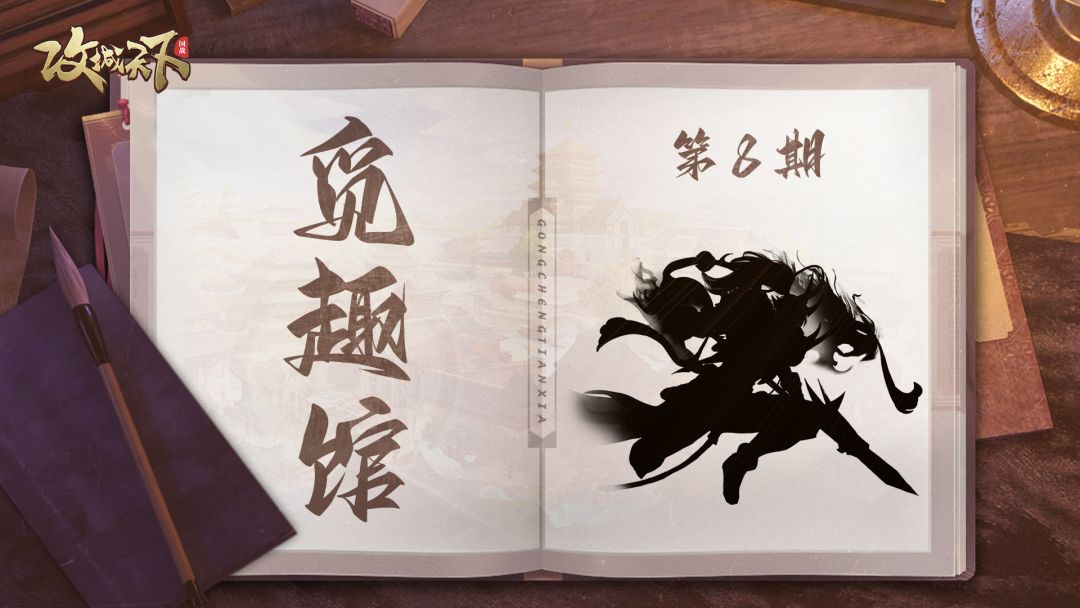 攻城天下
国战
觅趣馆
第8期
GONGCHENGTIANXIA